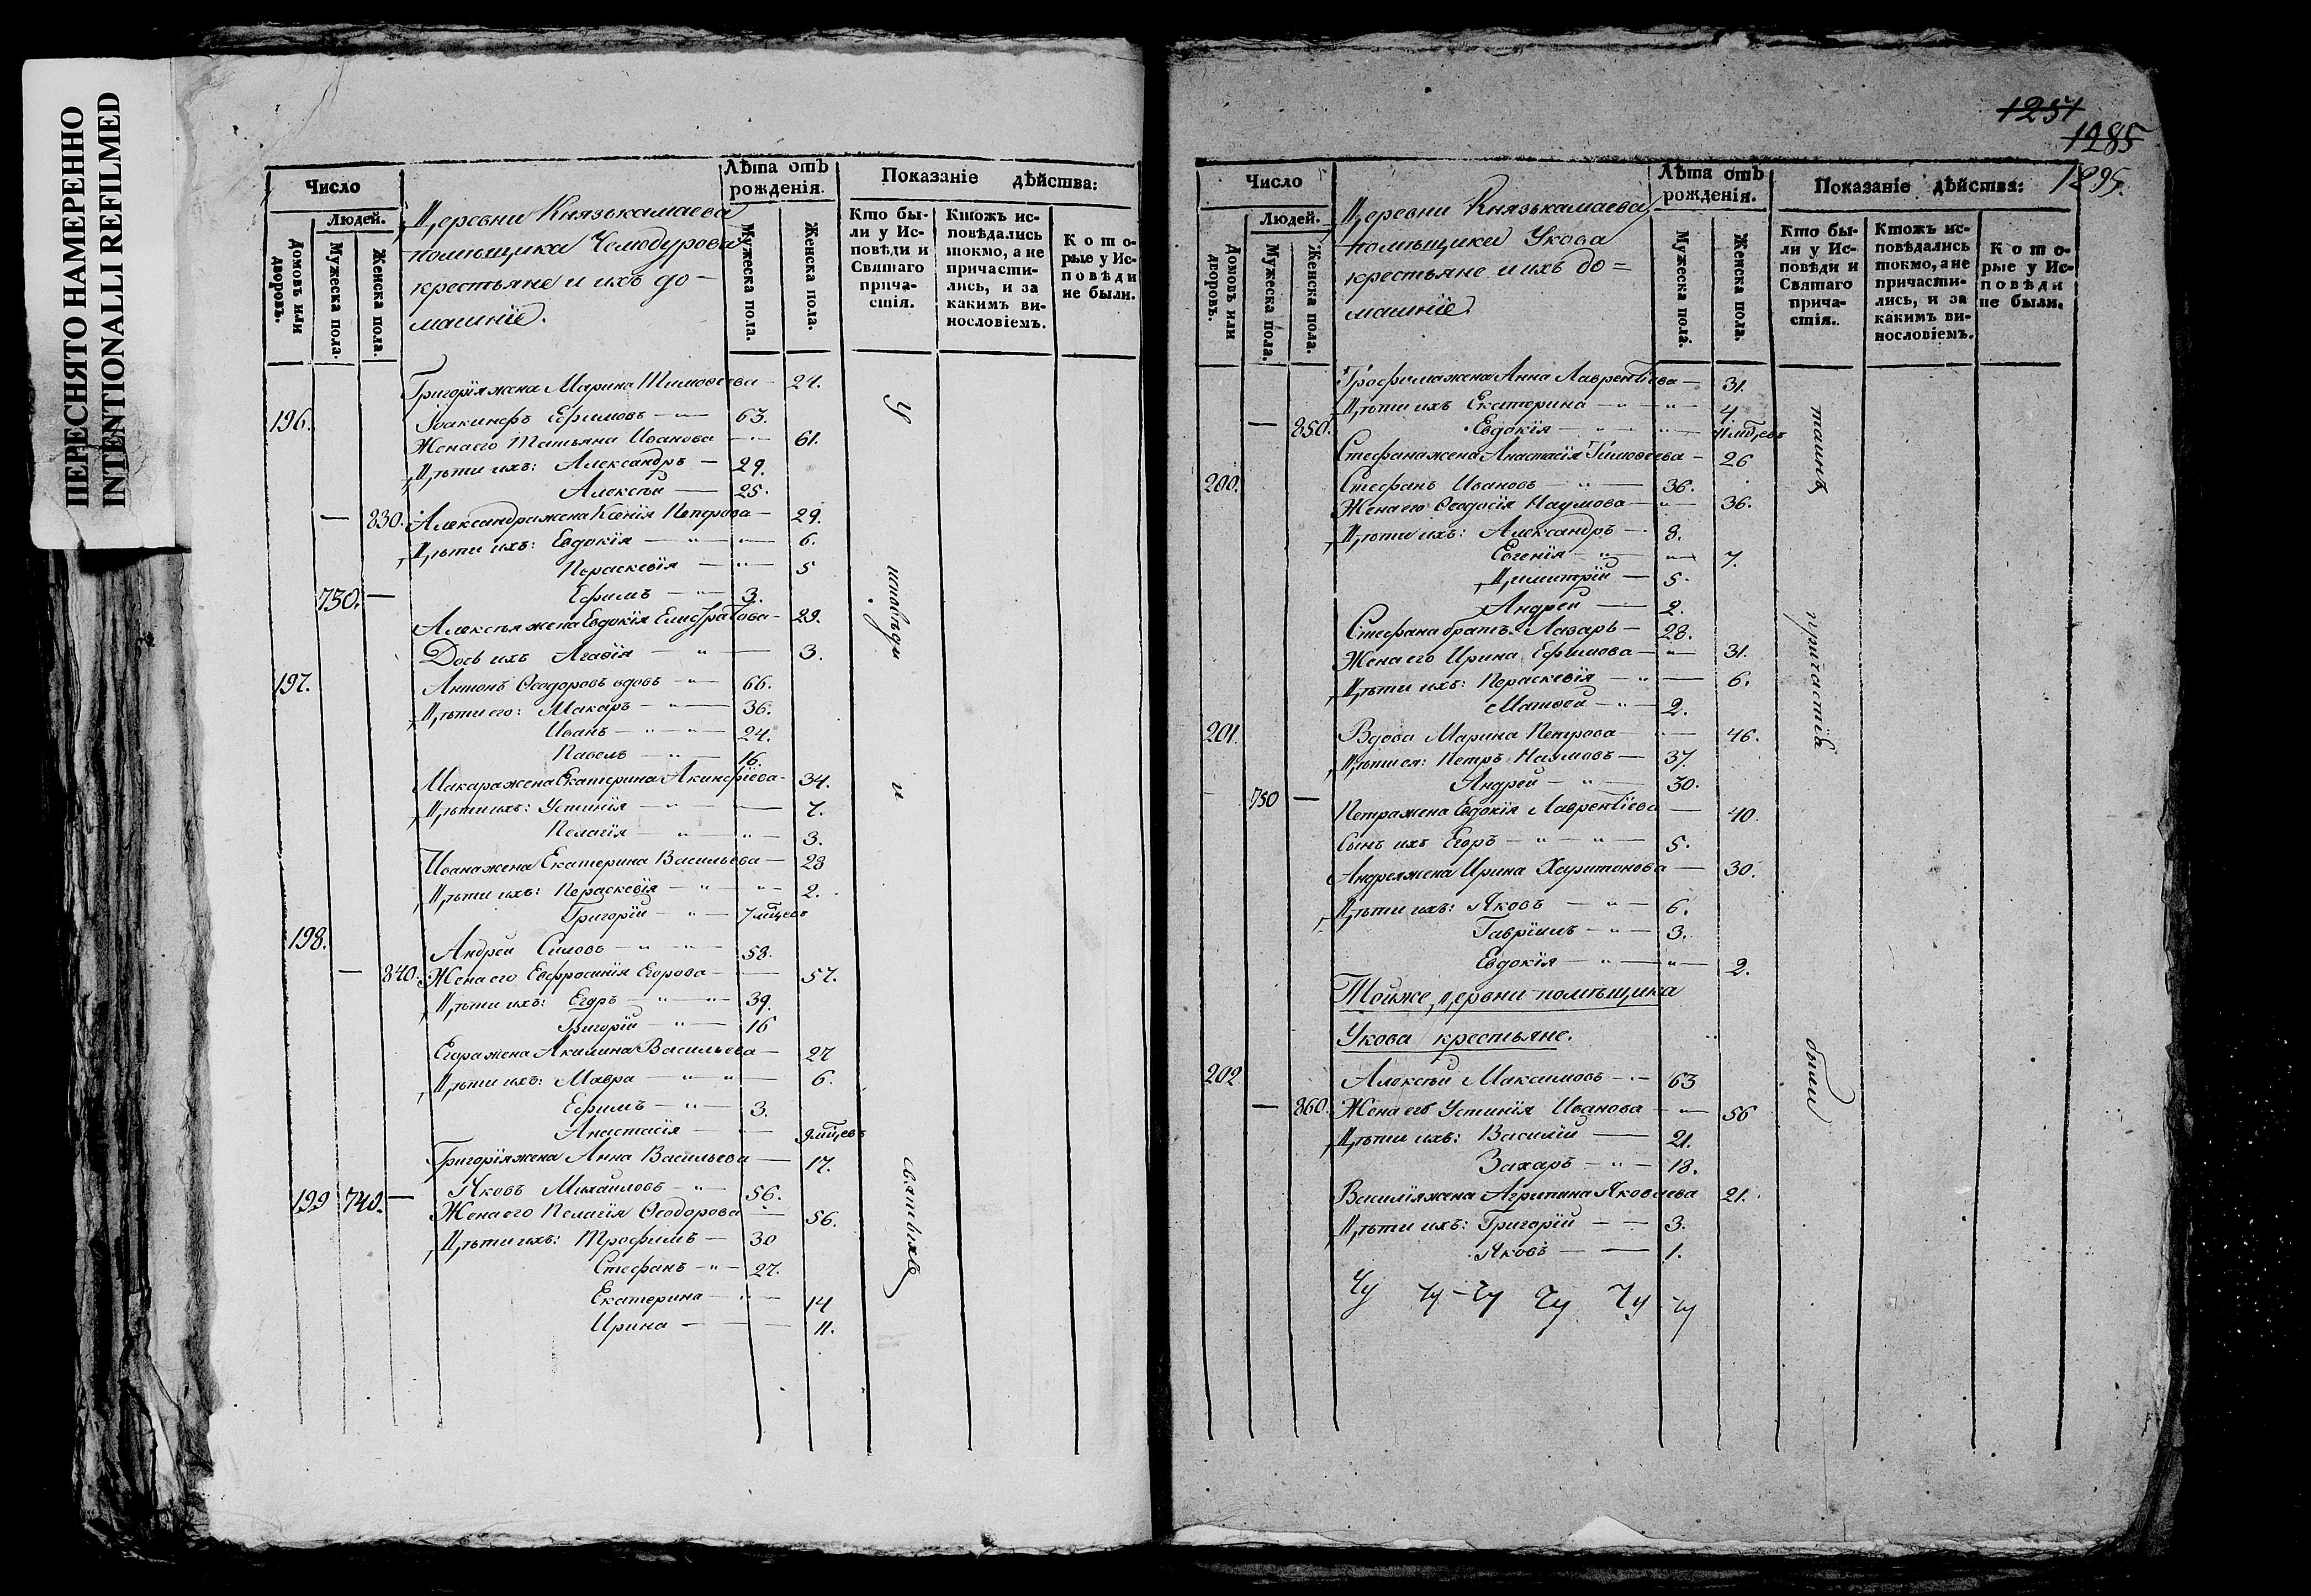 ПЕРЕСНЯТО НАМЕРЕННО
INTENTIONALLI REFILMED
Число
Людей.
Домовъ или дворовъ.
Мужеска пола.
Женска пола.
Деревни Князькамаева
помещика Чемодурова
крестьяне и ихъ до-
машніе.
Лѣта отъ рожденія.
Мужеска пола.
Женска пола.
Показаніе дѣйства:
Кто бы-
ли у Ис-
повѣди и
Святаго
прича-
стія.
Ктожъ ис-
повѣдались
токмо, а не
причасти-
лись, и за
какимъ ви-
нословіемъ.
Кото-
рые у Ис-
повѣди
не были.
Григорія жена Марина Тимофеева — 24.
196. Іоакинфъ Ефимовъ — 63.
Жена его Татьяна Иванова — 61.
Дѣти ихъ: Александръ — 29.
Алексѣй — 25.
— 830. Александра жена Ксенія Петрова — 29.
Дѣти ихъ: Евдокія — " — 6.
Параскевія — " — 5
730. — Ефимъ — " — 3.
Алексѣя жена Евдокія Елистратова — 29.
Дочь ихъ Агафія — " — 3.
197. Антонъ Ѳеодоровъ вдовъ — " — 66.
Дѣти его: Макаръ — " — 36.
Иванъ — " — " — 24.
Павелъ — " — 16.
Макара жена Екатерина Акинфіева — 34.
Дѣти ихъ: Устинія — " — 7.
Пелагія — " — " — 3.
Ивана жена Екатерина Васильева — 23
Дѣти ихъ: Параскевія — " — " — 2.
Григорій — " — 7 мцевъ
198. Андрей Силовъ — " — " — 58.
— 840. Жена его Евфросинія Егорова — 57.
Дѣти ихъ: Егоръ — " — " — 39.
Григорій — " — 16
Егора жена Акилина Васильева — 27
Дѣти ихъ: Мавра — " — " — 6.
Ефимъ — " — 3.
Анастасія — 9 мцевъ
Григорія жена Анна Васильева — 17.
199 740. — Яковъ Михайловъ — " — 56.
Жена его Пелагія Ѳеодорова — 56.
Дѣти ихъ: Трофимъ — 30
Стефанъ — " — 27.
Екатерина — " — 14
Ирина — 11.
у
исповѣди
и
святыхъ
1251
1285
1295.
Число
Людей.
Домовъ или дворовъ.
Мужеска пола.
Женска пола.
Деревни Князькамаева
помѣщика Укова
крестьяне и ихъ до=
машніе.
Лѣта отъ рожденія.
Мужеска пола.
Женска пола.
Показаніе дѣйства:
Кто бы-
ли у Ис-
повѣди и
Святаго
прича-
стія.
Ктожъ ис-
повѣдались
токмо, а не
причасти-
лись, и за
какимъ ви-
нословіемъ.
Кото-
рые у Ис-
повѣди
не были.
Трофима жена Анна Лаврентіева — 31.
Дѣти ихъ Екатерина — " — " — 4.
— 850. Евдокія — " — " — 11 мцевъ
Стефана жена Анастасія Тимофеева — 26
200. Стефанъ Ивановъ — " — 36.
Жена его Ѳеодосія Наумова — " — 36.
Дѣти ихъ: Александръ — 8.
Евгенія — " — " — 7.
Димитрій — 5.
Андрей — 2.
Стефана братъ Лазарь — 28.
Жена его Ирина Ефимова — " — 31.
Дѣти ихъ: Параскевія — " — 6.
Матвей — " — 2.
201. Вдова Марина Петрова — 46.
Дѣти ея: Петръ Наумовъ — 37.
Андрей — " — 30.
750 — Петра жена Евдокія Лаврентіева — 40.
Сынъ ихъ Егоръ — " — " — 5.
Андрея жена Ирина Харитонова — 30.
Дѣти ихъ: Яковъ — " — 6.
Гавріилъ — " — 3.
Евдокія — " — " — 2.
Тойже деревни помѣщика
Укова крестьяне.
202 Алексѣй Максимовъ — 63
— 860. Жена его Устинія Иванова — " — 56
Дѣти ихъ: Василій — 21.
Захаръ — " — 18.
Василія жена Агрипина Яковлева 21.
Дѣти ихъ: Григорій — 3.
Яковъ — 1.
таинъ
причастіи
были